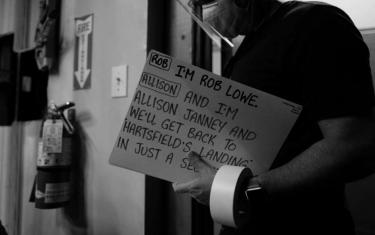 ROB I'M ROB LOWE.
ALLISON AND I'M
ALLISON JANNEY AND
WE'LL GET BACK TO
HARTSFIELD'S LANDING
IN JUST A